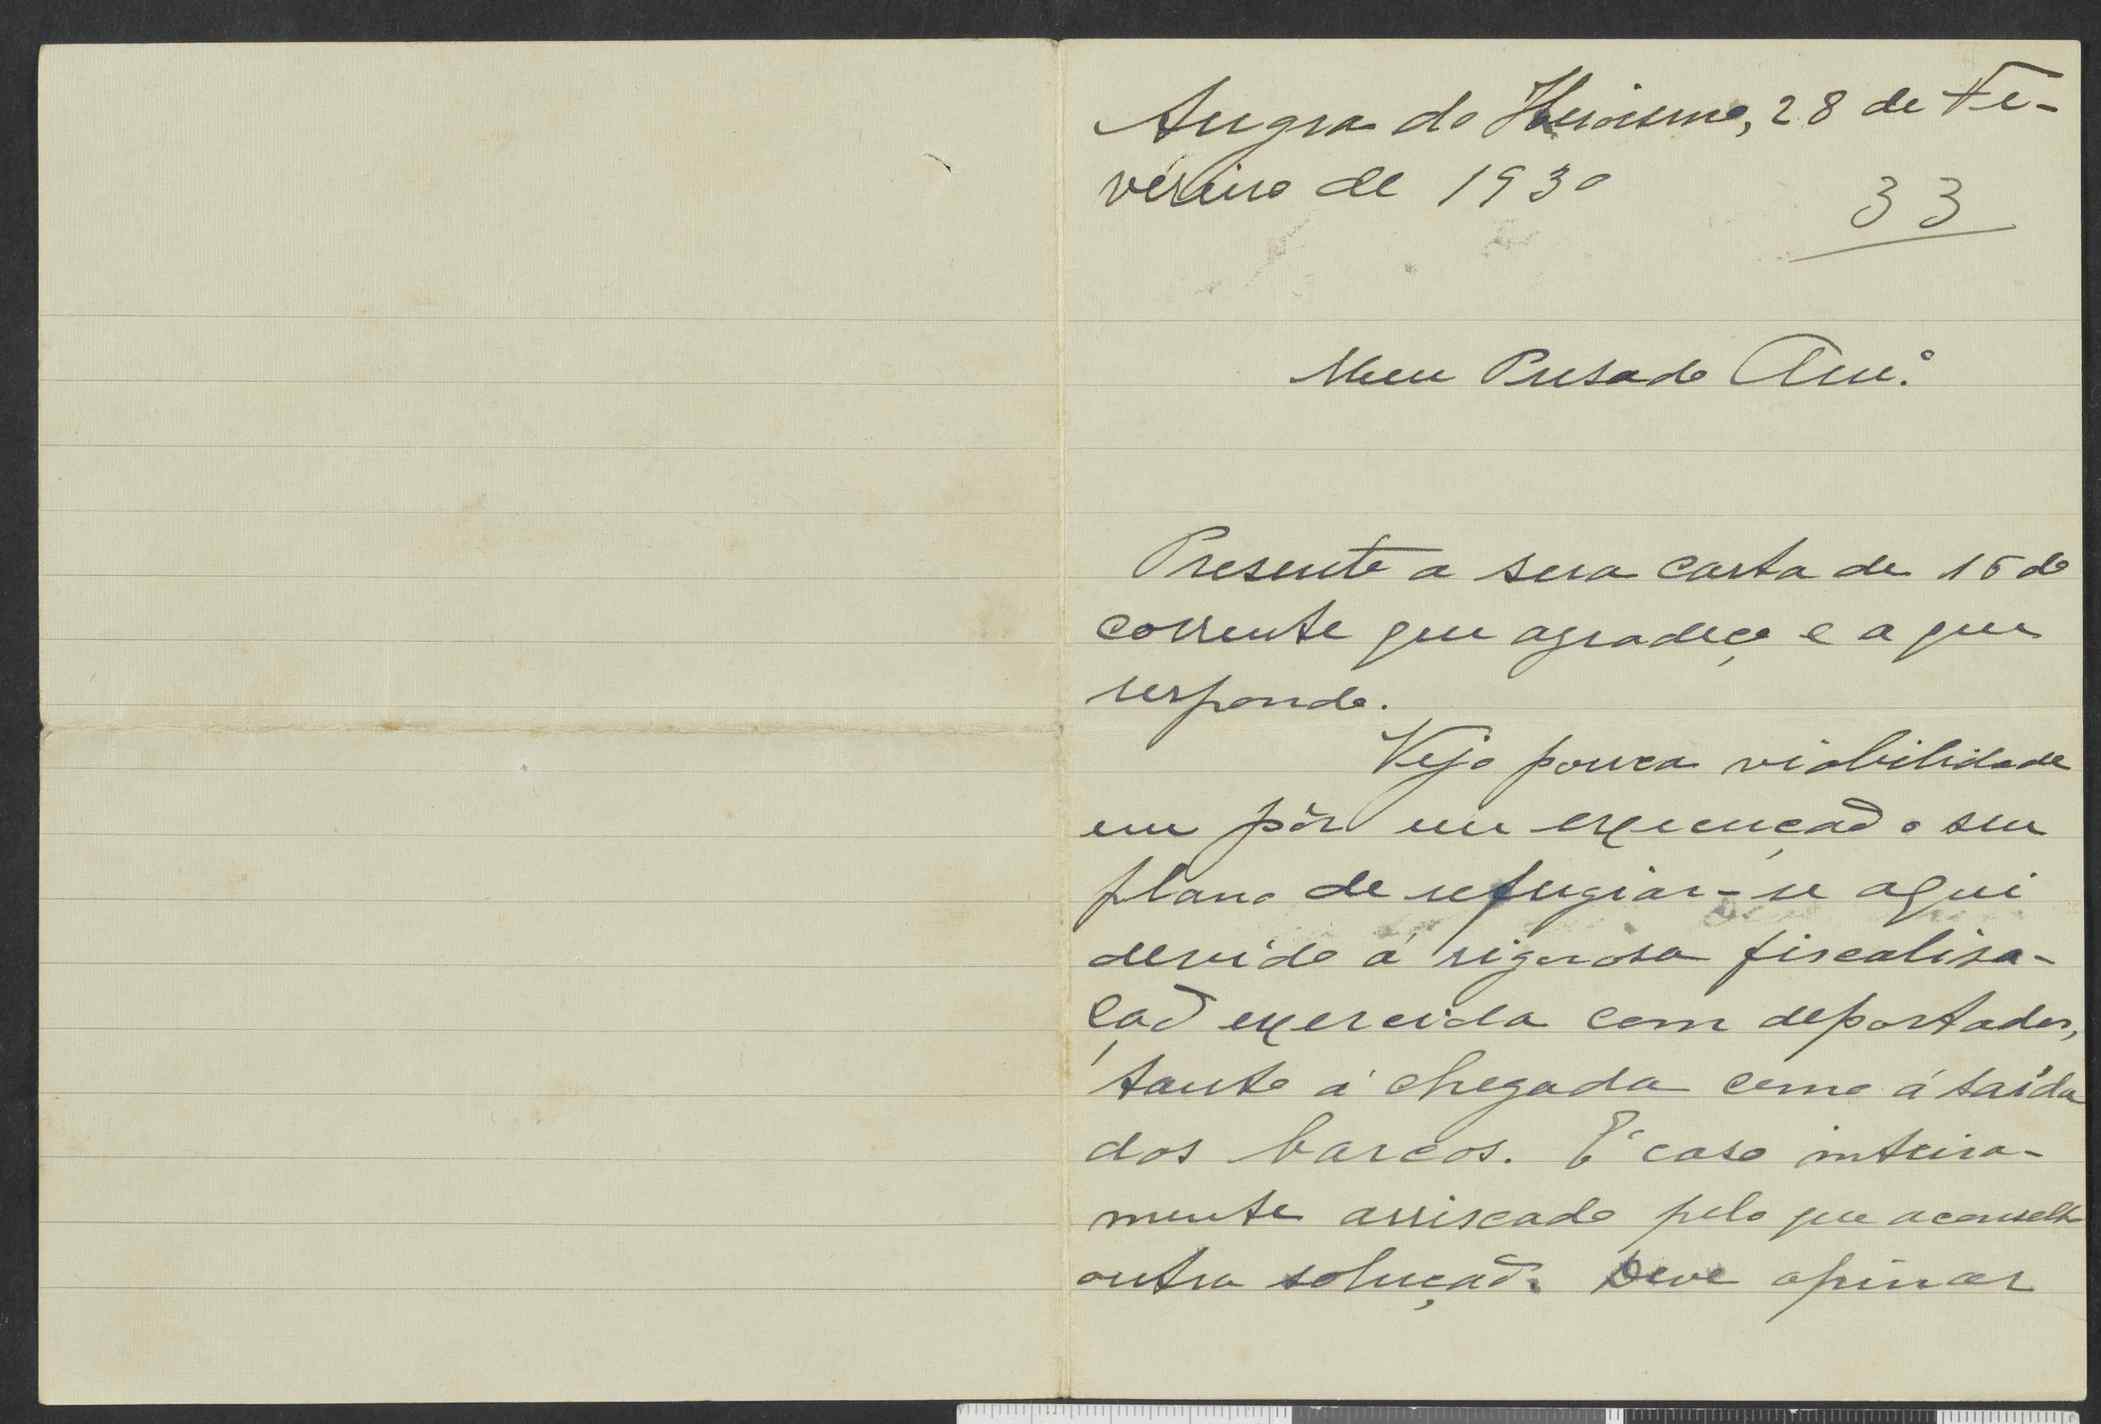 Angra do Heroismo, 28 de Fe-
vereiro de 1930
33
Meu Presado Am.º
Presente a sua carta de 15 do
corrente que agradeço e a que
respondo.
Vejo pouca viabilidade
em pôr em execução o seu
plano de refugiar-se aqui
devido á rigorosa fiscalisa-
ção exercida com deportados,
tanto á chegada como á saída
dos barcos. E' caso inteira-
mente arriscado pelo que aconselho
outra solução. Deve opinar